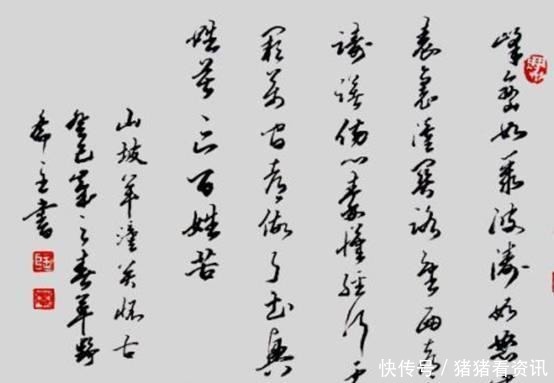 峰峦如聚波涛如怒
表裏潼関路望西
踌躇伤心秦汉经行
阙万间都做了土兴
姓苦亡百姓苦
山坡羊潼关怀古
癸巳岁之春草野
書
快传号/猪猪看资讯